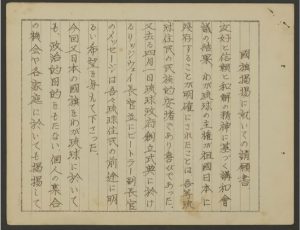 國旗掲揚に就いての請願書
友好と信頼と和解の精神に基づく講和會
議の結果、わが琉球の主權が祖國日本に
残存することが明確にされたことは吾等琉
球住民の民族的安堵であり喜びであった。
又去る四月一日琉球政府創立式典に於け
るリッジウェイ長官並にビートラー副長官
のメッセージは吾々琉球住民の前途に明
るい希望を与えて下さった。
今回又日本の國旗をわが琉球に於いて
も、政治的目的をもたない、個人の集合
の機会や各家庭に於いても掲揚して